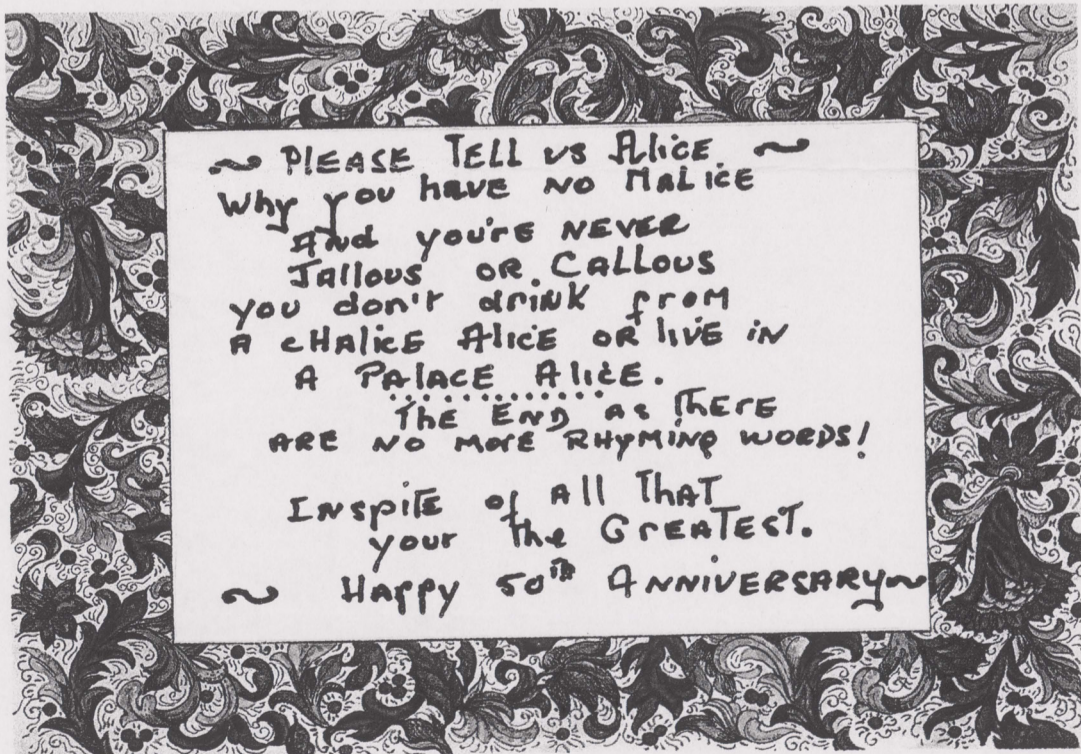 ~ PLEASE TELL us Alice. ~
Why you have NO MALICE
And you're NEVER
Jallous OR CALLOUS
you don't drink from
A cHALICE Alice OR live iN
A PALACE Alice.
The END as There
ARE NO MORE RHYMING WORDS!
INspite of all That
your the GREATEST.
~ Happy 50th ANNIVERSARY~